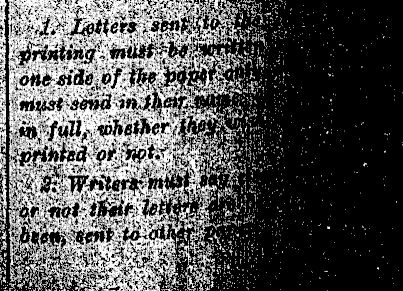 1. Letters sent to the
printing must be written
one side of the paper only
must send in their names
in full, whether they
printed or not.
2. Writers must say
or not their letters are
been, sent to other